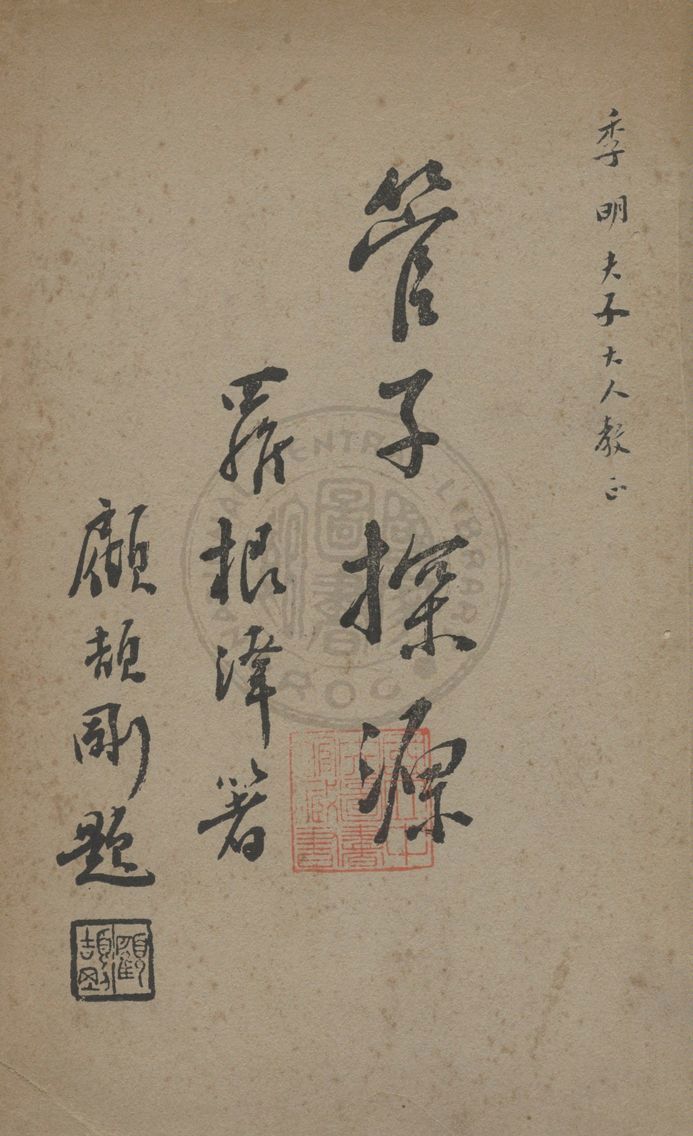 季明夫子大人教正
管子探源
羅根澤著
顧頡剛題
顧頡剛
圖書
CENTRAL LIBRARY
ROC